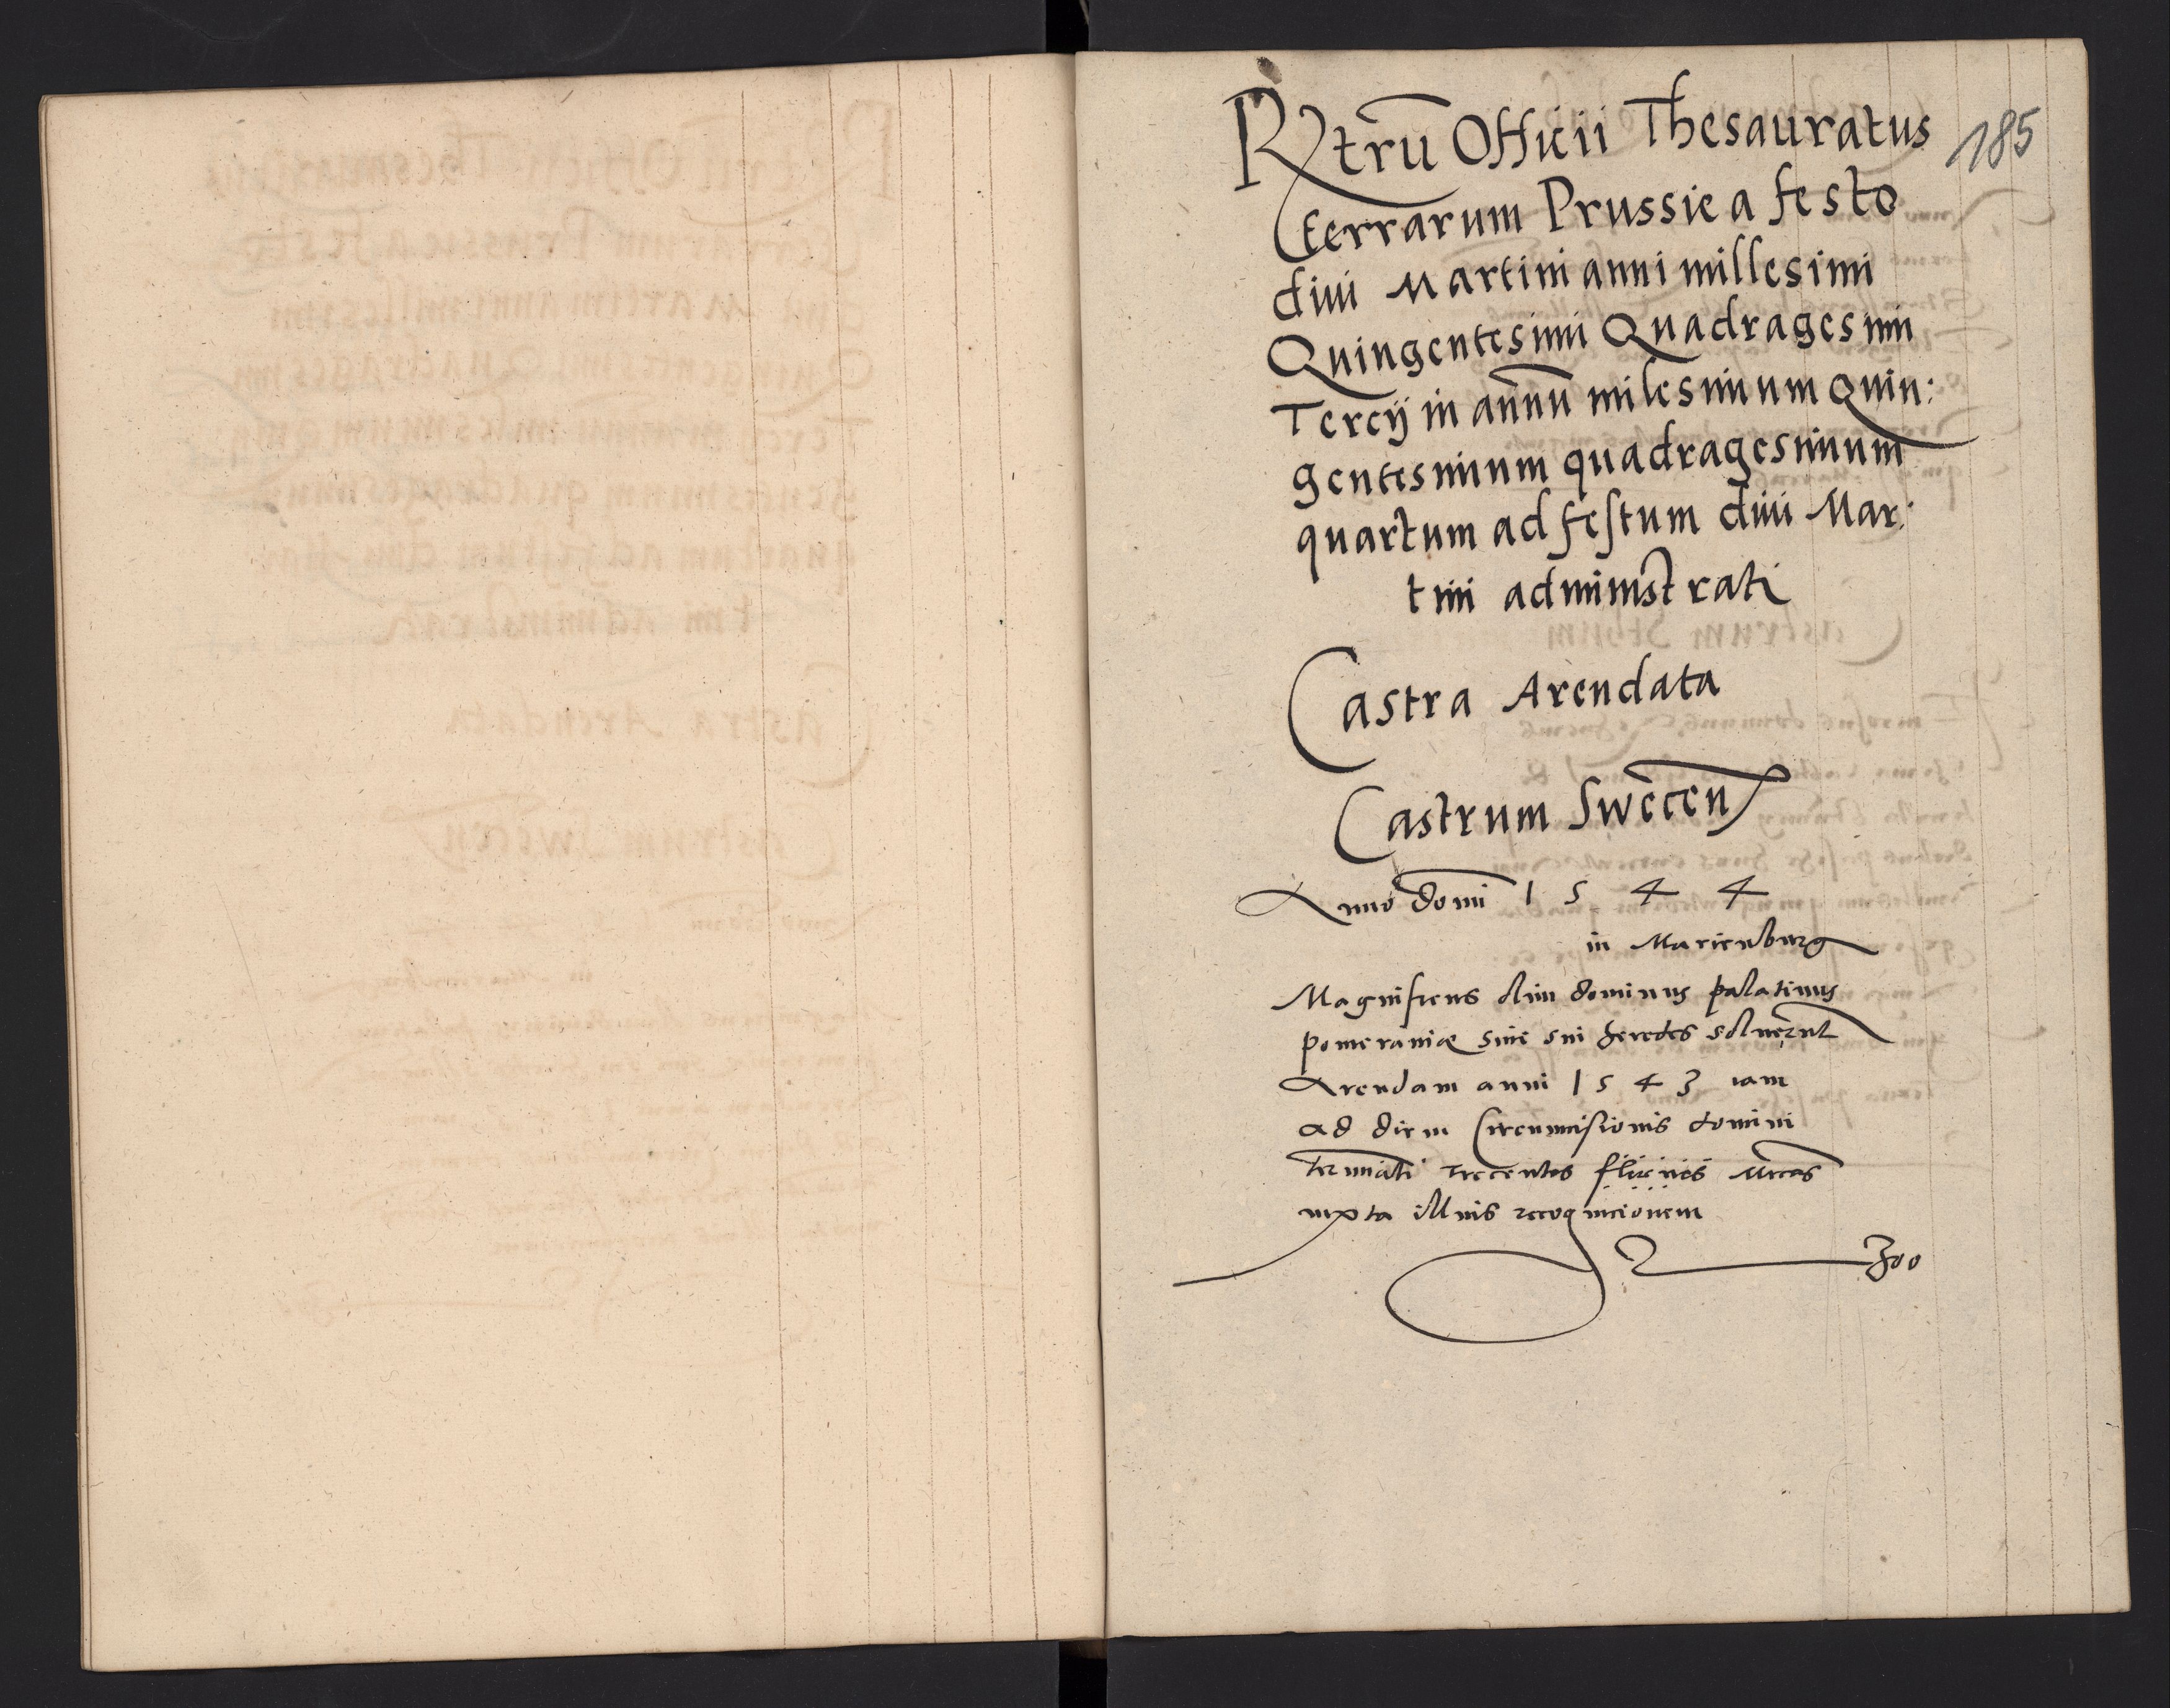 Rtrū Officii Thesauratus
185
terrarum Prussie a festo
diui Martini anni millesimi
Quingentesimi Quadragesimi
Tercij in annū milesimum Quin:
gentesimum quadragesimum
quartum ad festum diui Mar:
tini administrati
Castra Arendata
Castrum Swecen
Anno domi 1 5 4 4
in Marienburg
Magnificus olim dominus palatinus
pomeraniæ siue sui heredes soluerūt
Arendam anni 1 5 4 3 iam
ad diem Circumcisionis domini
trecentos
iuxta illius recognicionem
300